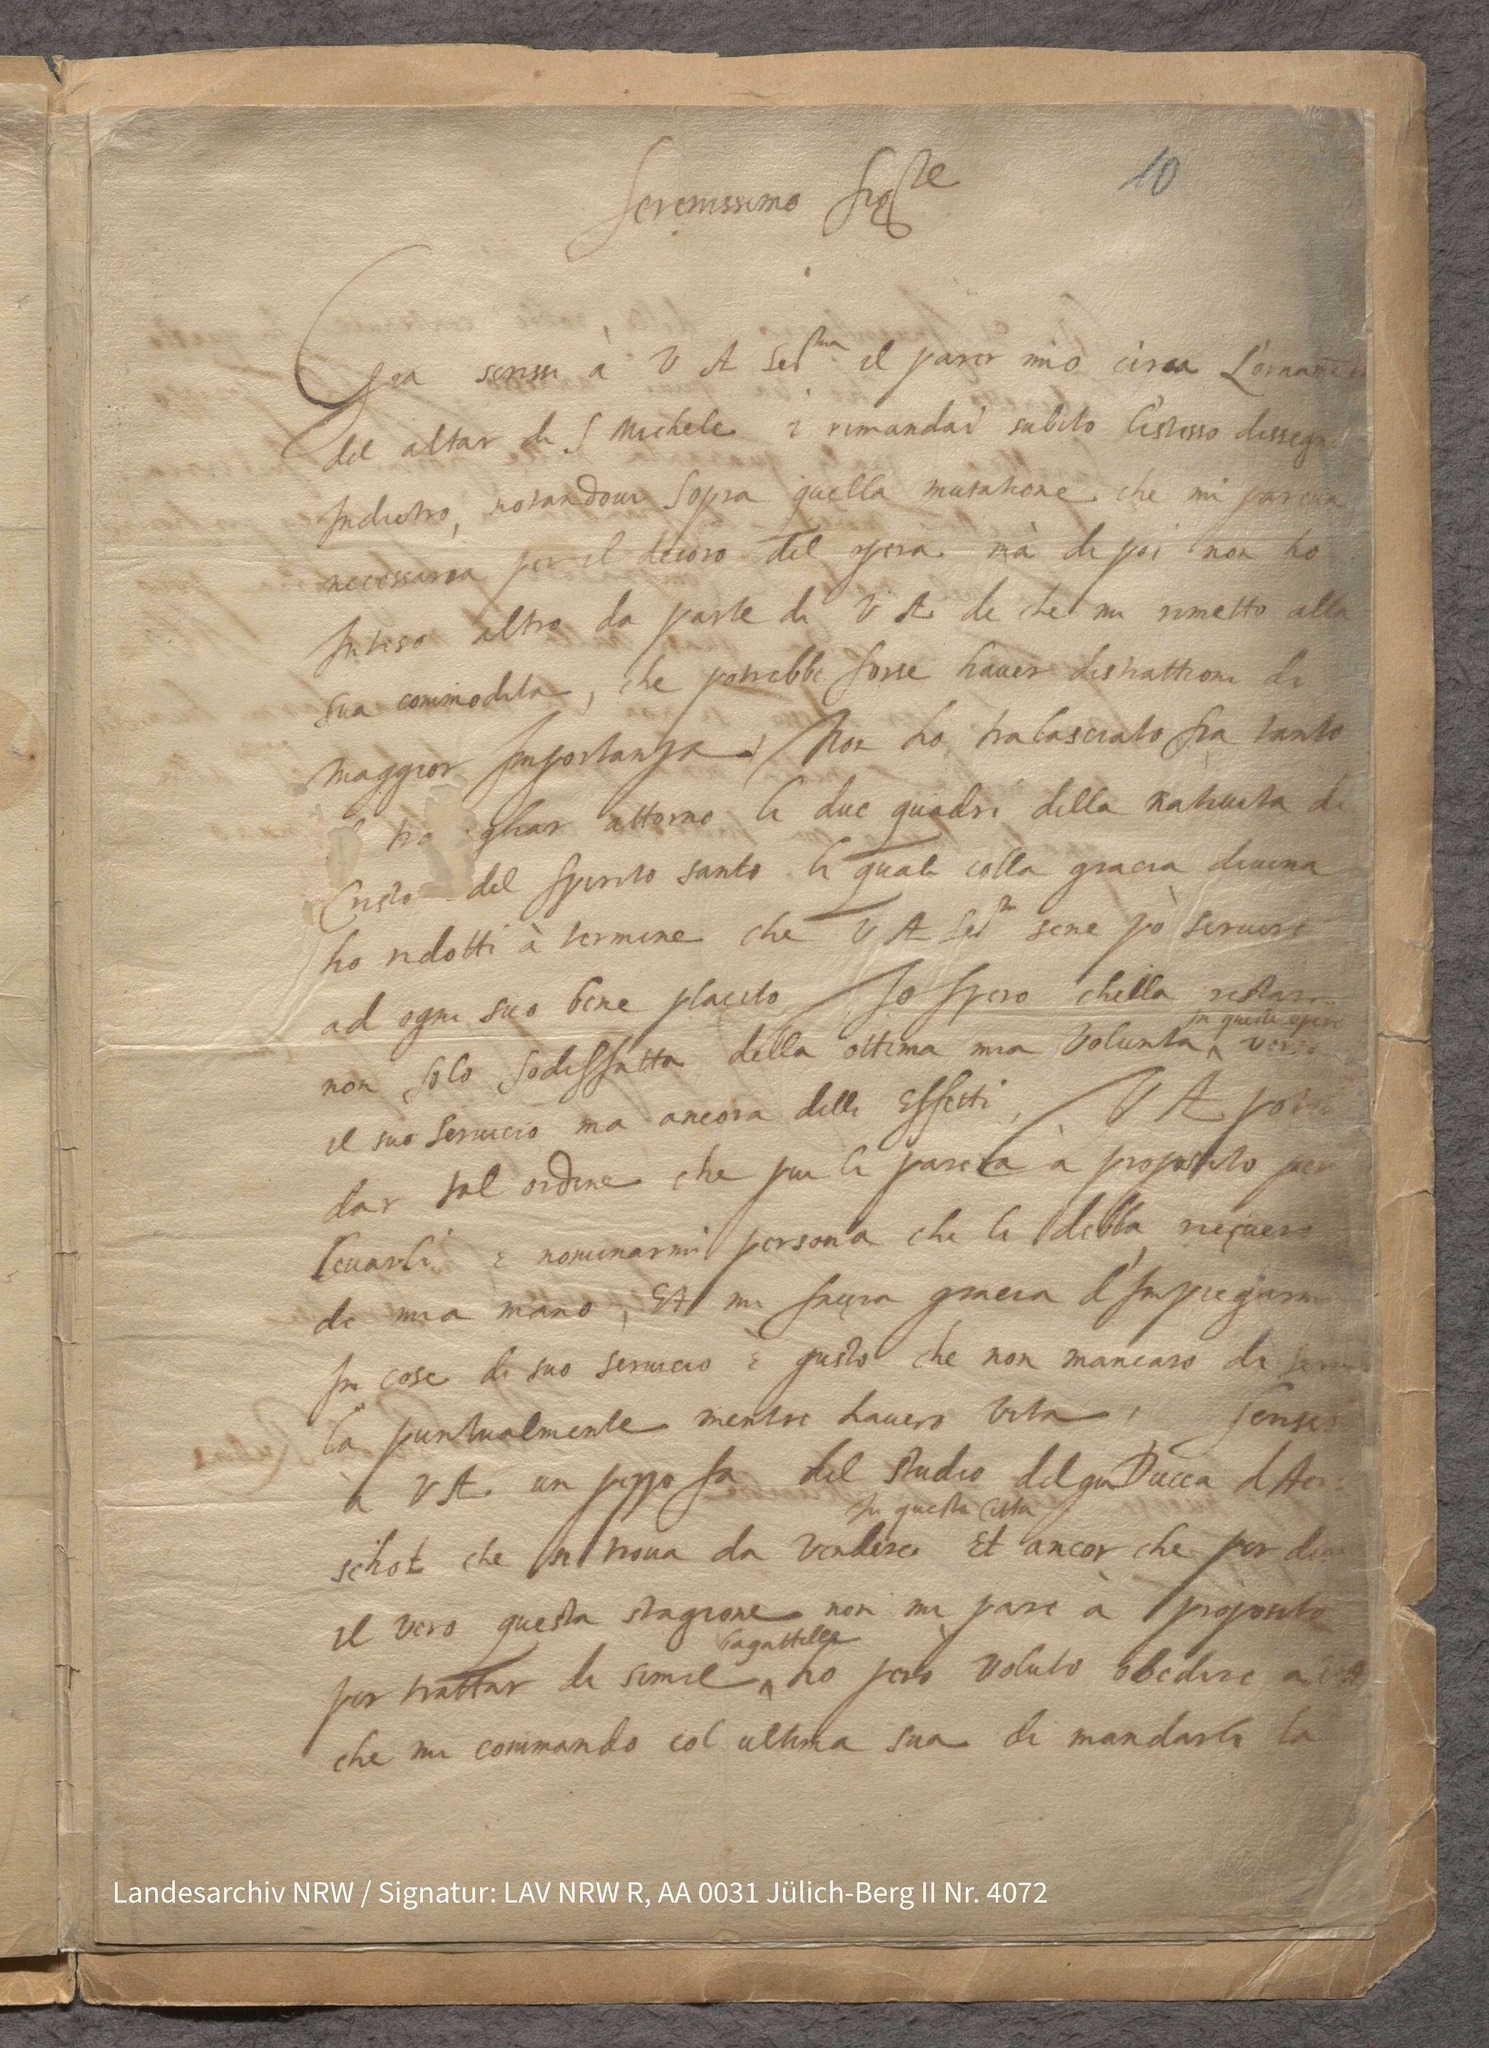 Serenissimo Sigre
10
Gia scrissi à V A Serma il parer mio circa L'ornamento
del altar di S Michele è rimandai subito l'istesso dissegno
Indietro, notandovi sopra quella mutatione che mi pareva
necessaria per il decoro del opera mà di poi non ho
Inteso altro da parte di V A di che mi rimetto alla
sua commodita, che potrebbe forse haver distrattioni di
maggior Importanza. Non ho tralasciato fra tanto
gliar attorno li due quadri della nativita di
Cristo del spirito santo li quali colla gracia divina
ho ridotti à termine che V A Serma sene pò servire
ad ogni suo bene placito Io spero chella restarà
non solo sodisfatta della ottima mia volunta in queste opere verso
il suo servicio ma ancora delli Effetti, V A potrà
dar tal ordine che piu li parera à proposito per
levarli è nominarmi persona che li debba riçuere
di mia mano, Et mi façia gracia d'Impiegarmi
In cose di suo servicio è gusto che non mancaro di
la puntualmente mentre havero vita, Scrissi
à V A un pezzo fa del studio del qu Ducca d'Ar
schot che si trova da vendere In questa Citta Et ancor che per dire
il vero questa stagione non mi pare à proposito
per trattar di simil bagattelle ho però voluto obedire a V A
che mi commando col ultima sua di mandarli la
Landesarchiv NRW / Signatur: LAV NRW R, AA 0031 Jülich-Berg II Nr. 4072